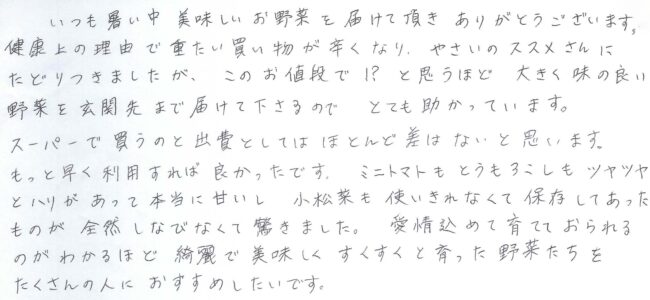 いつも暑い中 美味しいお野菜を届けて頂き ありがとうございます。
健康上の理由で重たい買い物が辛くなり、やさいのススメさんに
たどりつきましたが、このお値段で!?と思うほど 大きく味の良い
野菜を玄関先まで届けて下さるので とても助かっています。
スーパーで買うのと出費としてはほとんど差はないと思います。
もっと早く利用すれば良かったです。ミニトマトもとうもろこしもツヤツヤ
とハリがあって本当に甘いし 小松菜も使いきれなくて保存してあった
ものが全然しなびてなくて驚きました。愛情込めて育てておられる
のがわかるほど 綺麗で美味しく すくすくと育った野菜たちを
たくさんの人におすすめしたいです。